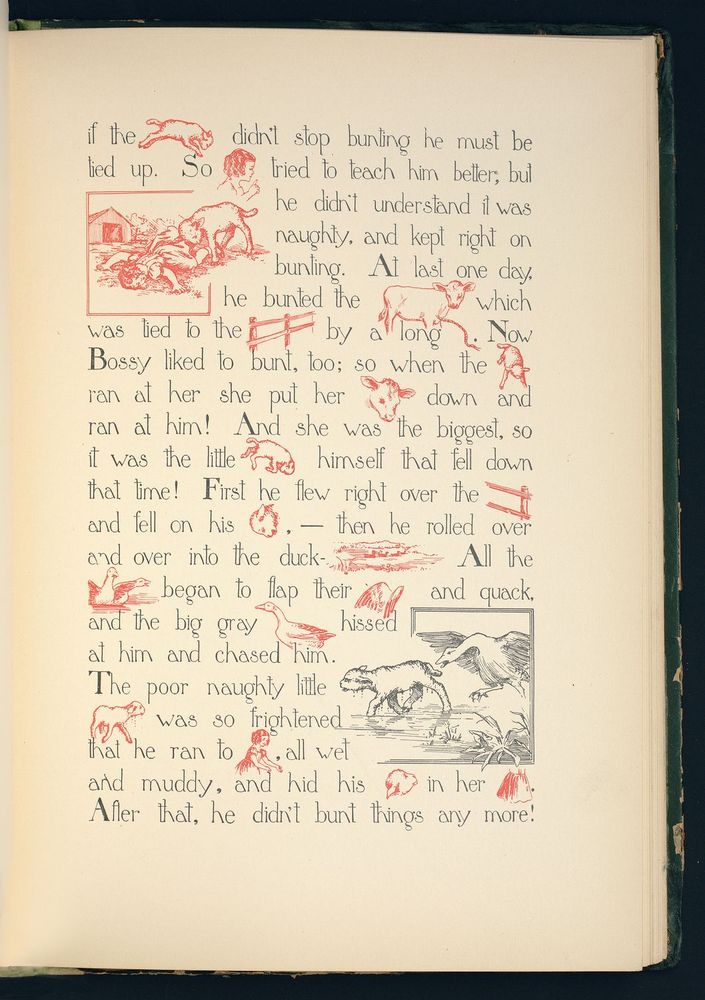 if the didn't stop bunting he must be
tied up. So tried to teach him better, but
he didn't understand it was
naughty, and kept right on
bunting. At last one day,
he bunted the which
was tied to the by a long . Now
Bossy liked to bunt, too; so when the
ran at her she put her down and
ran at him! And she was the biggest, so
it was the little himself that fell down
that time! First he flew right over the
and fell on his , — then he rolled over
and over into the duck- All the
began to flap their and quack,
and the big gray hissed
at him and chased him.
The poor naughty little
was so frightened
that he ran to , all wet
and muddy, and hid his in her .
After that, he didn't bunt things any more!